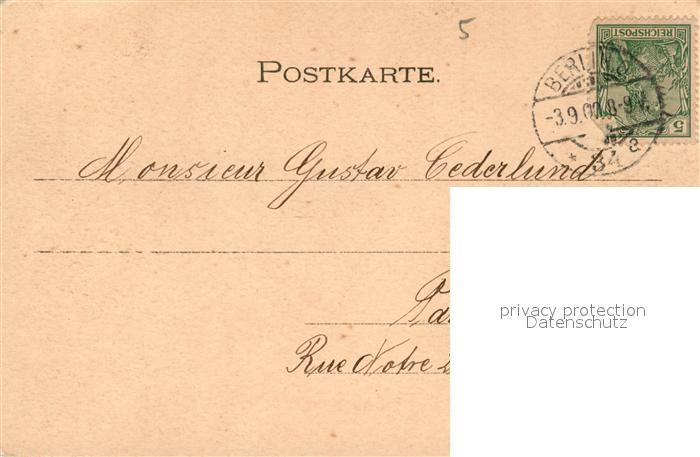 5
POSTKARTE.
REICHSPOST
5
BERLIN
-3.9.00. 8-9 V.
* 54 a
Monsieur Gustav Cederlund
privacy protection
Datenschutz
Rue Notre